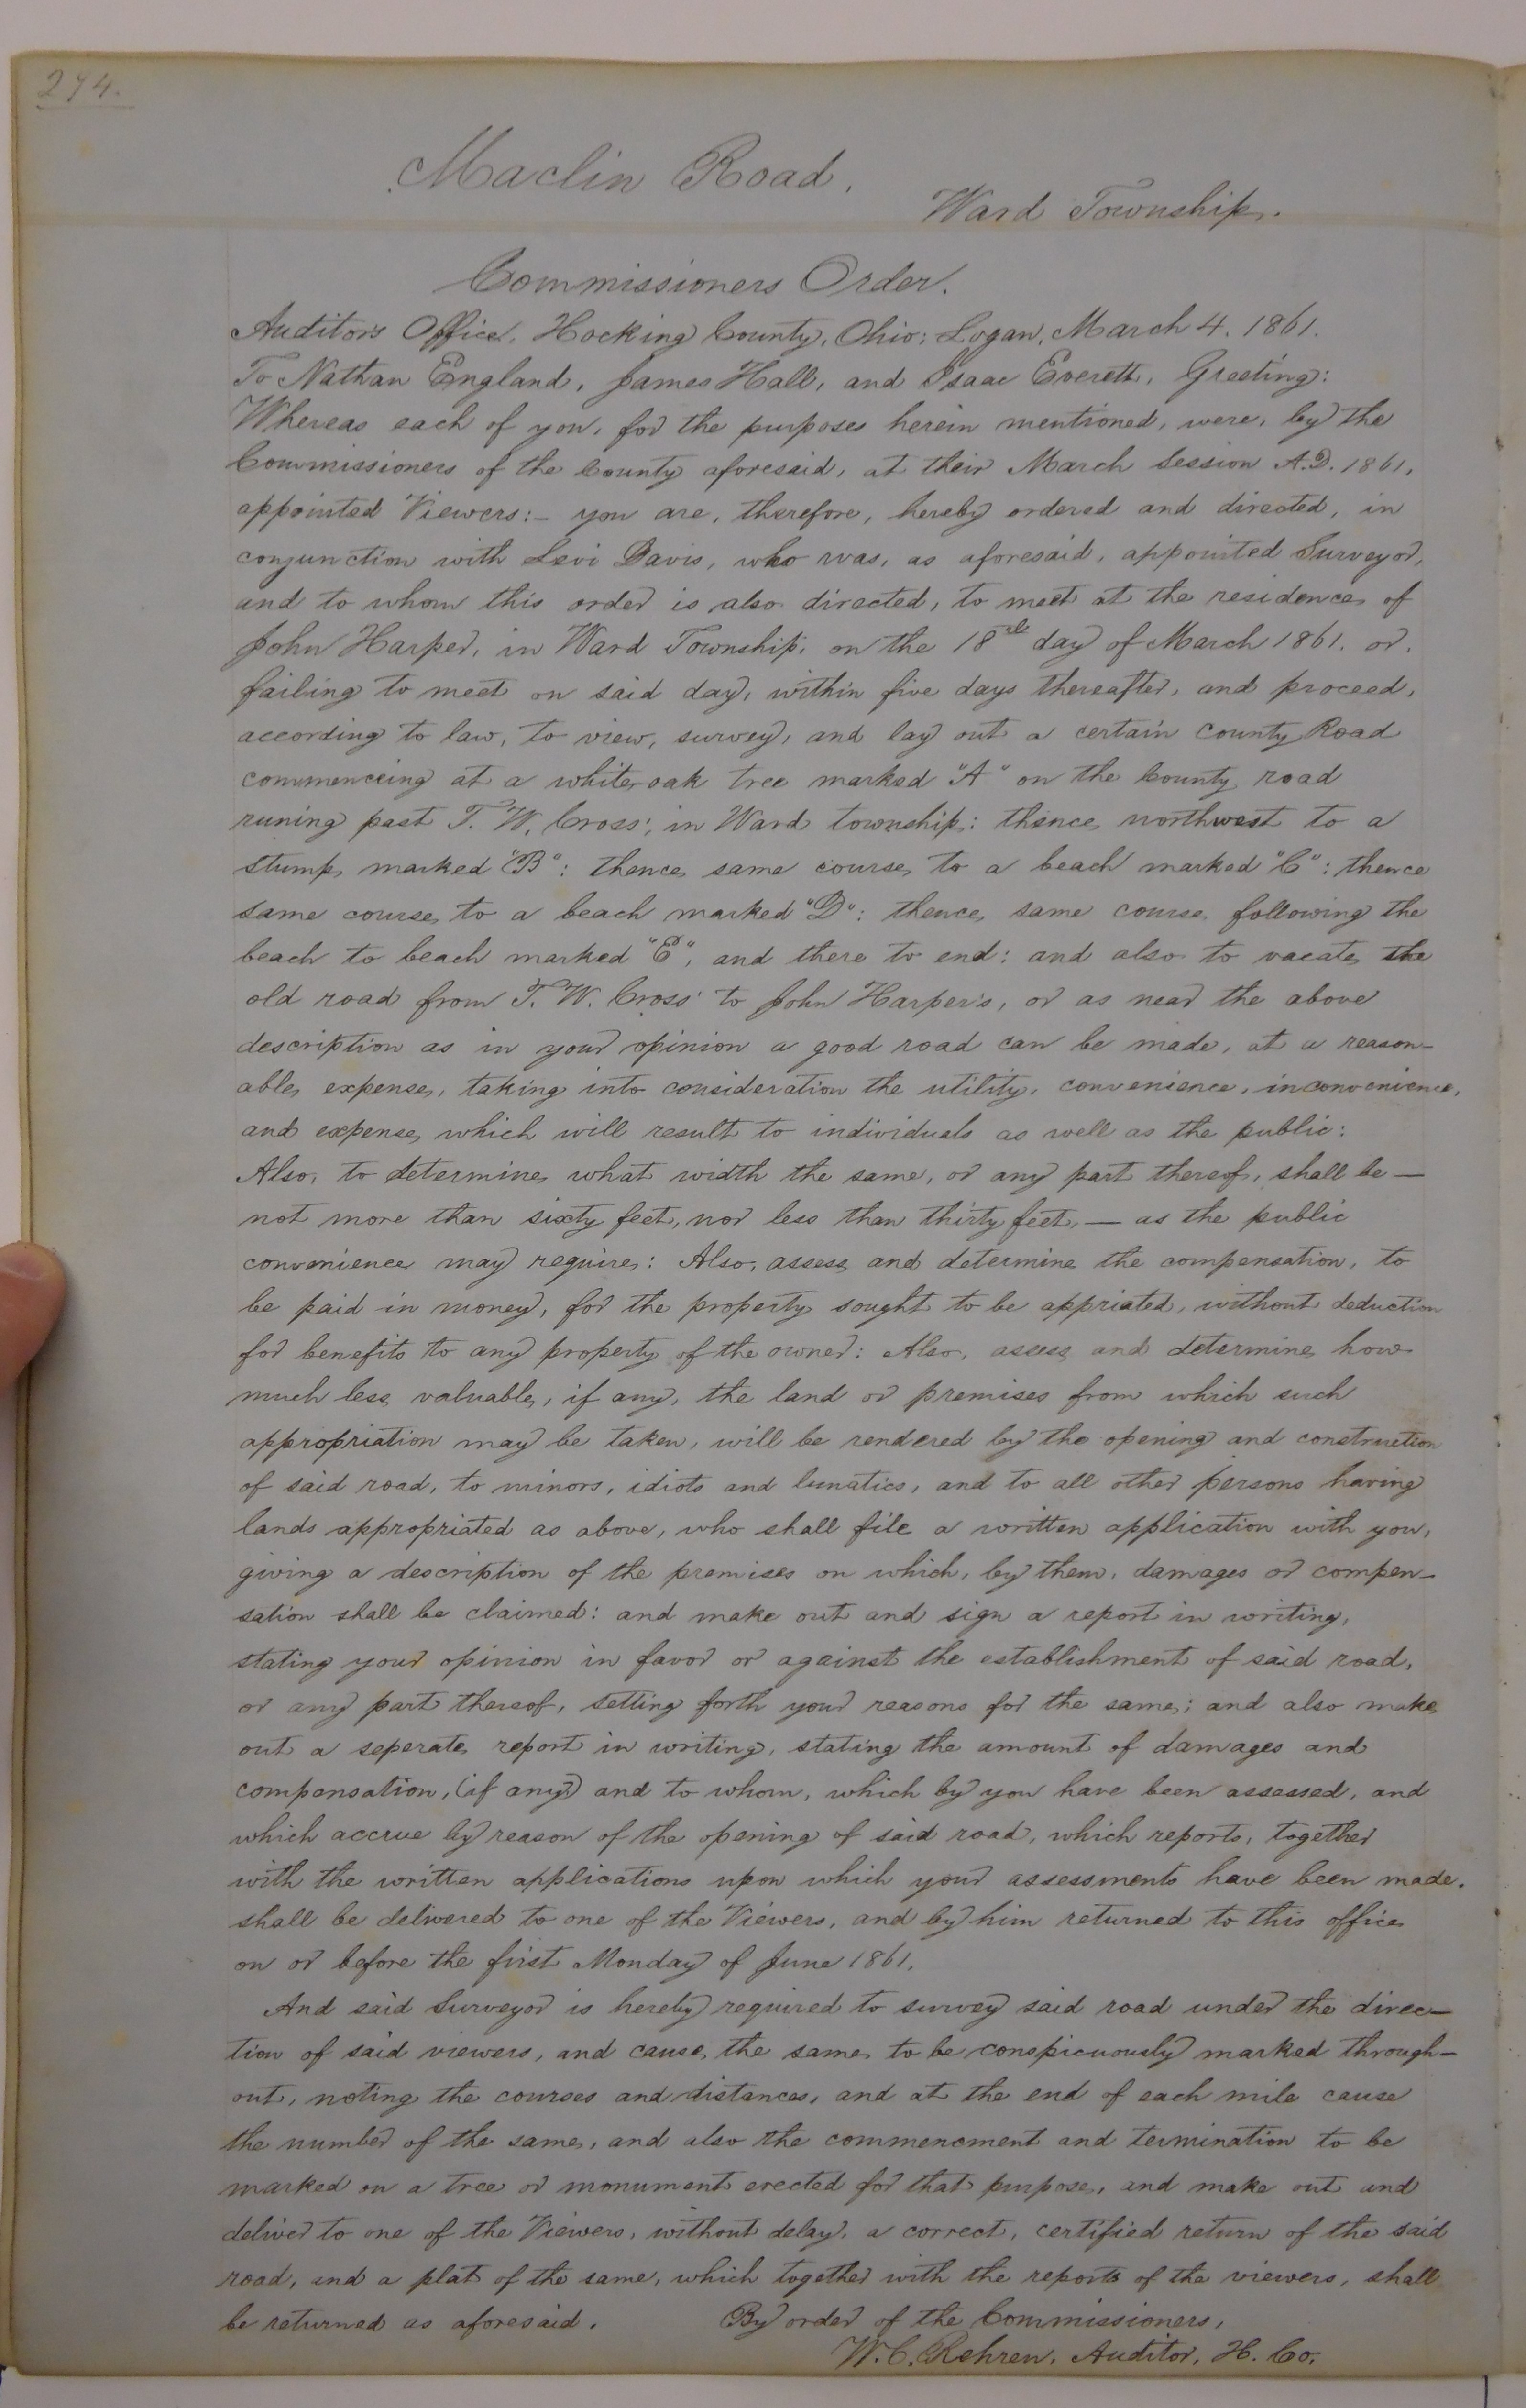 294.
Maclin Road.
Ward Township.
Commissioners Order.
Auditors Office, Hocking County, Ohio; Logan, March 4. 1861.
To Nathan England, James Hall, and Isaac Everett, Greeting:
Whereas each of you, for the purposes herein mentioned, were, by the
Commissioners of the County aforesaid, at their March Session A.D. 1861,
appointed Viewers:- you are, therefore, hereby ordered and directed, in
conjunction with Levi Davis, who was, as aforesaid, appointed Surveyor,
and to whom this order is also directed, to meet at the residence of
John Harper, in Ward Township, on the 18th day of March 1861. or,
failing to meet on said day, within five days thereafter, and proceed,
according to law, to view, survey, and lay out a certain County Road
commenceing at a white oak tree marked "A" on the County road
runing past T. W. Cross', in Ward township: thence northwest to a
stump marked "B": thence same course to a beach marked "C": thence
same course to a beach marked "D": thence same course following the
beach to beach marked "E", and there to end: and also to vacate the
old road from T. W. Cross' to John Harper's, or as near the above
description as in your opinion a good road can be made, at a reason-
able expense, taking into consideration the utility, convenience, inconvenience,
and expense which will result to individuals as well as the public:
Also, to determine what width the same, or any part thereof, shall be —
not more than sixty feet, nor less than thirty feet, — as the public
convenience may require: Also, assess and determine the compensation, to
be paid in money, for the property sought to be appriated, without deduction
for benefits to any property of the owner: Also, assess and determine how
much less valuable, if any, the land or premises from which such
appropriation may be taken, will be rendered by the opening and construction
of said road, to minors, idiots and lunatics, and to all other persons having
lands appropriated as above, who shall file a written application with you,
giving a description of the premises on which, by them, damages or compen-
sation shall be claimed: and make out and sign a report in writing,
stating your opinion in favor or against the establishment of said road,
or any part thereof, setting forth your reasons for the same; and also make
out a seperate report in writing, stating the amount of damages and
compensation, (if any) and to whom, which by you have been assessed, and
which accrue by reason of the opening of said road, which reports, together
with the written applications upon which your assessments have been made.
shall be delivered to one of the Viewers, and by him returned to this office
on or before the first Monday of June 1861.
And said Surveyor is hereby required to survey said road under the direc-
tion of said viewers, and cause the same to be conspicuously marked through-
out, noting the courses and distances, and at the end of each mile cause
the number of the same, and also the commencment and termination to be
marked on a tree or monument erected for that purpose, and make out and
deliver to one of the Viewers, without delay, a correct, certified return of the said
road, and a plat of the same, which together with the reports of the viewers, shall
be returned as aforesaid. By order of the Commissioners,
W. C. Rehren, Auditor, H. Co.